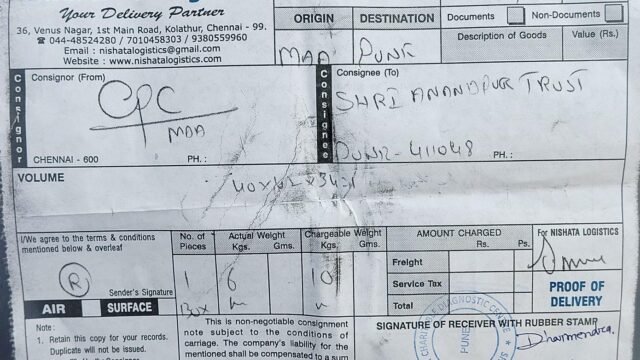 Your Delivery Partner
36, Venus Nagar, 1st Main Road, Kolathur, Chennai - 99.
☎ 044-48524280 / 7010458303 / 9380559960
Email : nishatalogistics@gmail.com
Website : www.nishatalogistics.com
ORIGIN DESTINATION
MAA PUNE
Documents Non-Documents
Description of Goods Value (Rs.)
Consignor
Consignor (From)
CPC
MAA
CHENNAI - 600 PH. :
Consignee
Consignee (To)
SHRI ANANDPUR TRUST
PUNE - 411048 PH. :
VOLUME
I/We agree to the terms & conditions
mentioned below & overleaf
R
Sender's Signature
AIR SURFACE
No. of Pieces Actual Weight Kgs. Gms. Chargeable Weight Kgs. Gms.
1 6 10
Box
AMOUNT CHARGED
Rs. Ps.
Freight
Service Tax
Total
For NISHATA LOGISTICS
PROOF OF
DELIVERY
Note :
1. Retain this copy for your records.
Duplicate will not be issued.
This is non-negotiable consignment
note subject to the conditions of
carriage. The company's liability for the
mentioned shall be compensated to a sum
SIGNATURE OF RECEIVER WITH RUBBER STAMP
Dharmendra
DIAGNOSTIC
PUNE